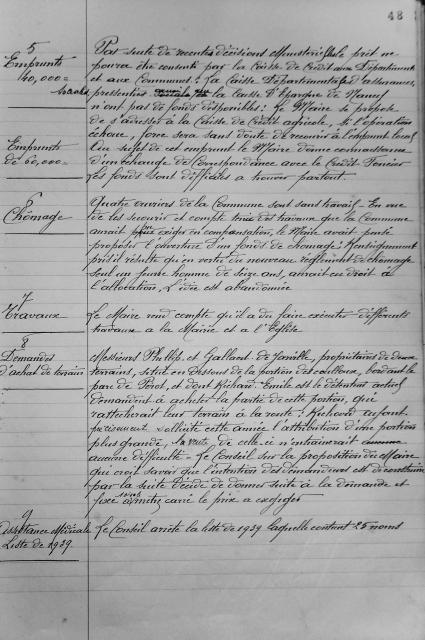 48
5
Emprunts
40,000=
Par suite de récentes décisions Ministérielles prêt ne
pourra être consenti par la Caisse de Crédit aux Départements
et aux Communes; la Caisse Départementale d'assurances,
pressenties la Caisse d'Epargne de Nancy
n'ont pas de fonds disponibles: le Maire se propose
de s'adresser à la Caisse de Crédit agricole, si l'opération
échoue, force sera sans doute de recourir à l'emprunt local
Emprunts
de 60,000=
Au sujet de cet emprunt le Maire donne connaissance
d'un échange de Correspondance avec le Crédit Foncier
Les fonds sont difficiles a trouver partout.
6
Chômage
Quatre ouvriers de la Commune sont sans travail. En vue
de les secourir et compte tenu des travaux que la Commune
aurait pu exiger en compensation, le Maire avait pensé
proposer l'ouverture d'un fonds de chomage: Renseignement
pris il résulte qu'en vertu du nouveau règlement de chomage
seul un jeune homme de seize ans, aurait eu droit à
l'allocation, l'idée est abandonnée
7
Travaux
Le Maire rend compte qu'il a du faire exécuter différents
travaux a la Mairie et a l'Eglise
8
Demandes
d'achat de terrain
Messieurs Phillip. et Galland de Jarville, propriétaires de deux
terrains, situé en dessous de la portion des couloirs, bordant le
parc de et dont Richard Emile est le détenteur actuel
demandent à acheter la partie de cette portion, qui
rattacherait leur terrain à la route: Richard ayant
précisément sollicité cette année l'attribution d'une portion
plus grande, la vente, de celle-ci n'entrainerait
aucune difficulté = Le Conseil sur la proposition du Maire
qui croit savoir que l'intention des demandeurs est de construire
par la suite Décide de donner suite à la demande et
fixe le prix a exiger
9
Assistance Médicale
Liste de 1939.
Le Conseil arrête la liste de 1939 laquelle contient 25 noms